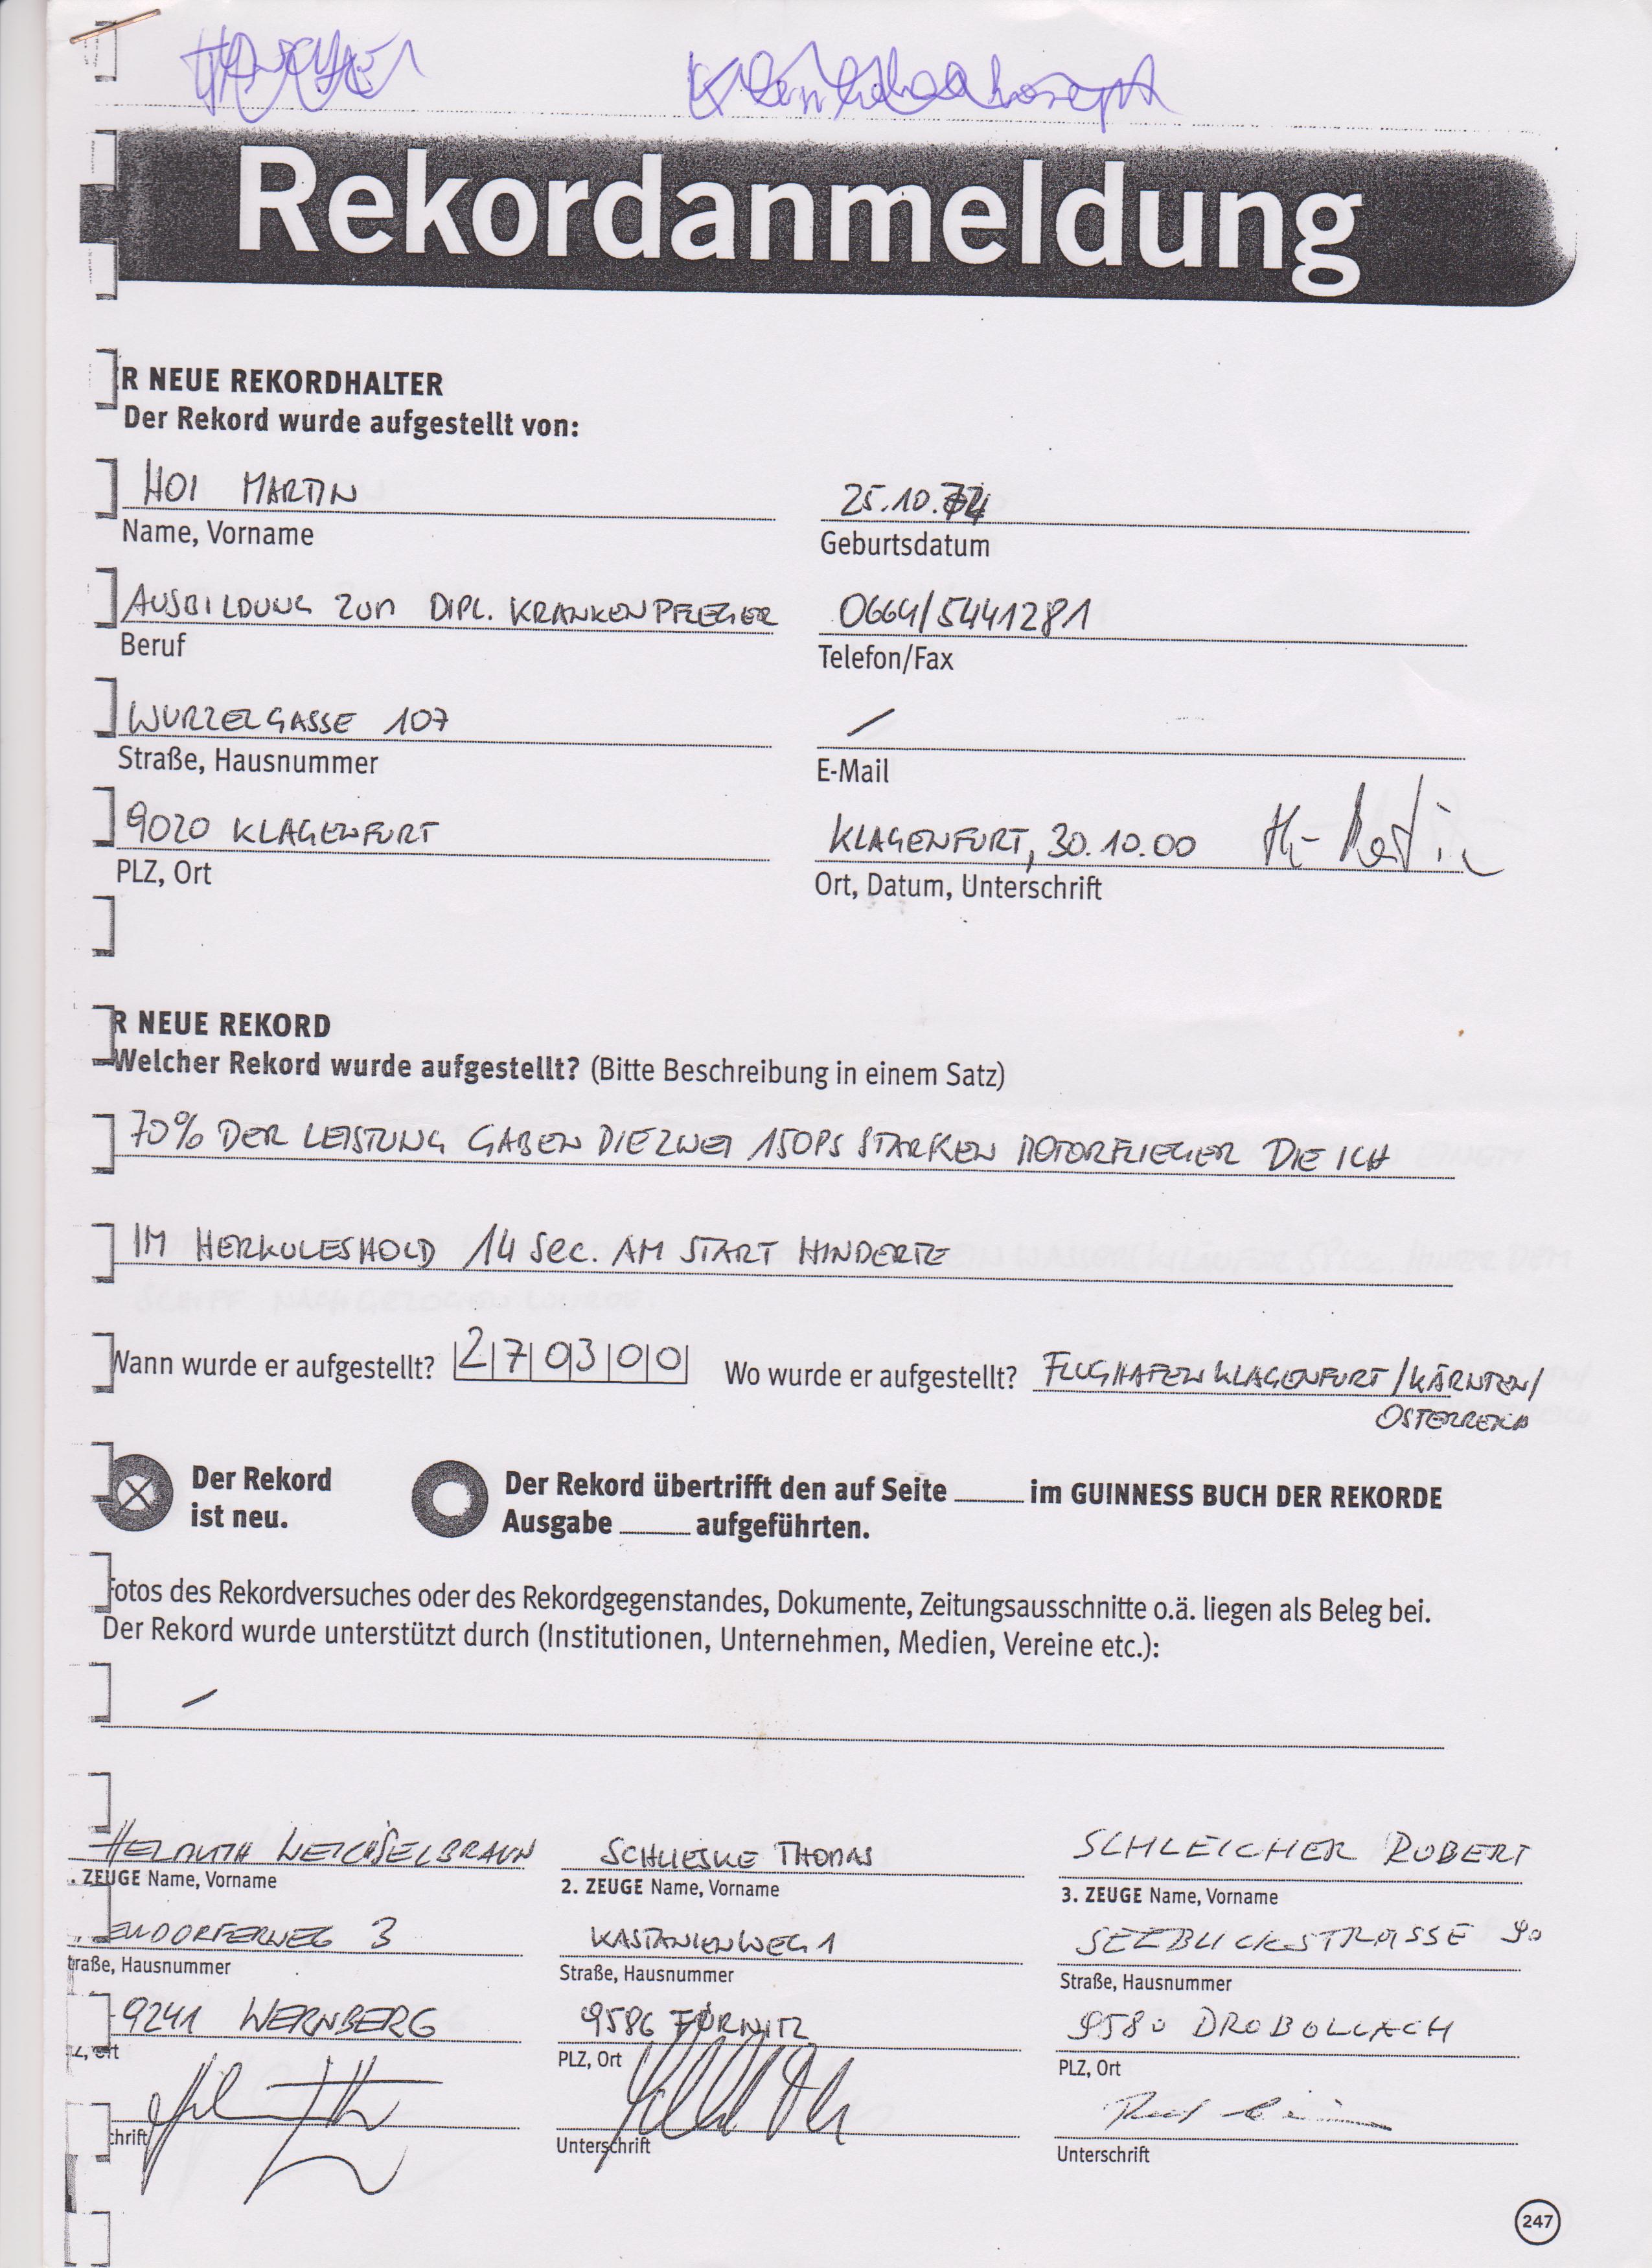 Rekordanmeldung
R NEUE REKORDHALTER
Der Rekord wurde aufgestellt von:
HOI MARTIN 25.10.74
Name, Vorname Geburtsdatum
AUSBILDUNG ZUM DIPL. KRANKENPFLEGER 0664/5441281
Beruf Telefon/Fax
WURZELGASSE 107 /
Straße, Hausnummer E-Mail
9020 KLAGENFURT KLAGENFURT, 30.10.00
PLZ, Ort Ort, Datum, Unterschrift
R NEUE REKORD
Welcher Rekord wurde aufgestellt? (Bitte Beschreibung in einem Satz)
70% DER LEISTUNG GABEN DIE ZWEI 150PS STARKEN MOTORFLIEGER DIE ICH
IM HERKULESHOLD 14 SEC. AM START HINDERTE
Wann wurde er aufgestellt? 270300 Wo wurde er aufgestellt? FLUGHAFEN KLAGENFURT/KÄRNTEN/
ÖSTERREICH
Der Rekord ist neu. Der Rekord übertrifft den auf Seite ____ im GUINNESS BUCH DER REKORDE
Ausgabe ____ aufgeführten.
Fotos des Rekordversuches oder des Rekordgegenstandes, Dokumente, Zeitungsausschnitte o.ä. liegen als Beleg bei.
Der Rekord wurde unterstützt durch (Institutionen, Unternehmen, Medien, Vereine etc.):
/
HELMUTH WEICHSELBRAUN SCHLIESKE THOMAS SCHLEICHER ROBERT
. ZEUGE Name, Vorname 2. ZEUGE Name, Vorname 3. ZEUGE Name, Vorname
ENDORFERWEG 3 KASTANIENWEG 1 SEEBLICKSTRASSE 90
traße, Hausnummer Straße, Hausnummer Straße, Hausnummer
9241 WERNBERG 9586 FÜRNITZ 9580 DROBOLLACH
Ort PLZ, Ort PLZ, Ort
chrift Unterschrift Unterschrift
247